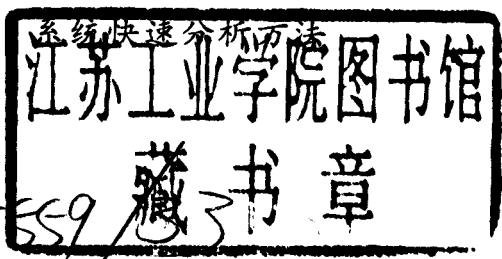 系统快速分析方法
江苏工业学院图书馆
藏书章